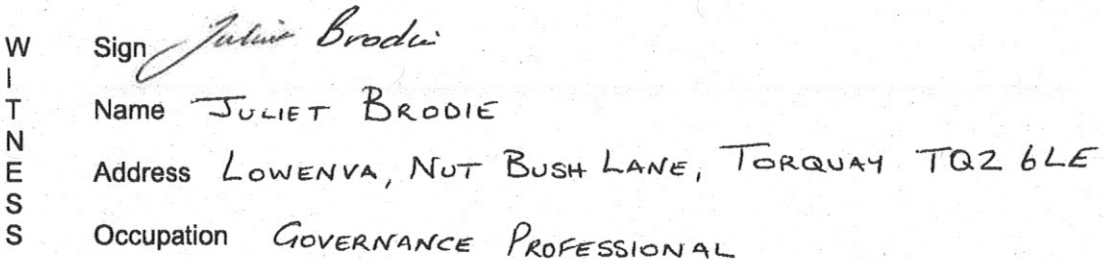 WITNESS
Sign Juliet Brodie
Name JULIET BRODIE
Address LOWENVA, NUT BUSH LANE, TORQUAY TQ2 6LE
Occupation GOVERNANCE PROFESSIONAL